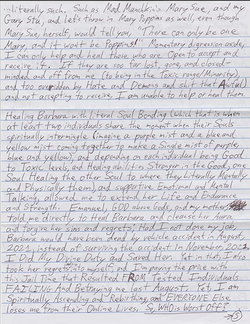 -literally such. Such as Mad Munchkin's Mary Sue, and my
Gary Stu, and let's throw in Mary Poppins as well, even though
Mary Sue, herself, would tell you, "There can only be one
Mary, and it won't be Poppins!" Momentary digression aside,
I can only help and heal those who are Open to accept and
receive it. If they are too far lost, gone, and closed-
minded and off from me (to being in the Toxic range/Minority)
and too overridden by Hate and Demons and shit that Awful)
and not accepting to receive, I am unable to help or heal them.
Healing Barbara with literal Soul Bonding (which that is when
at least two individuals share the moment where their Souls
spiritually intermingle. Imagine a purple mist and a blue and
yellow mist coming together to make a single mist of purple,
blue and yellow), and depending on each individual being Good
to Toxic levels, and healing ability is Stronger in the Good, one
Soul Healing the other Soul to where they literally Mentally
and Physically then), and supportive Emotional and Mental
Talking, allowed me to extend her Life and Endurance
and Strength. Emanuel, GOD were both, and my mother
Told me directly to Heal Barbara and cleanse her Aura
and forgive her sins and regrets; Had I not done my job,
Barbara would have been dead by vehicle accident in August,
2021, instead of surviving the accident in November 2021.
I Did My Divine Duty and Saved Her. Yet in that I also
took her reproofs into myself, and am paying the price with
this Jail Time that Resulted FROM Excited Individuals
FAILING And Betraying me last August. Yet, I am
Spiritually Ascending and Rebirthing, and EVERYONE Else
loses me from Their Online Lives. So, WHO is Worst OFF?